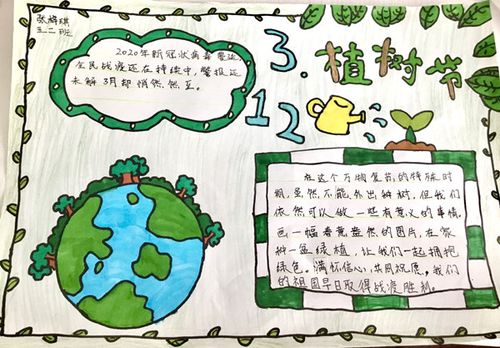 张梅琪
三二班
2020年新冠状病毒蔓延
全民战疫还在持续中,警报还
未解3月却悄然然至。
3.
12
植树节
在这个万物复苏的特殊时
期,虽然不能外出种树,但我们
依然可以做一些有意义的事情,
画一幅春意盎然的图片,在家
种一盆绿植,让我们一起拥抱
绿色。满怀信心,共同祝愿,我们
的祖国早日取得战疫胜利。